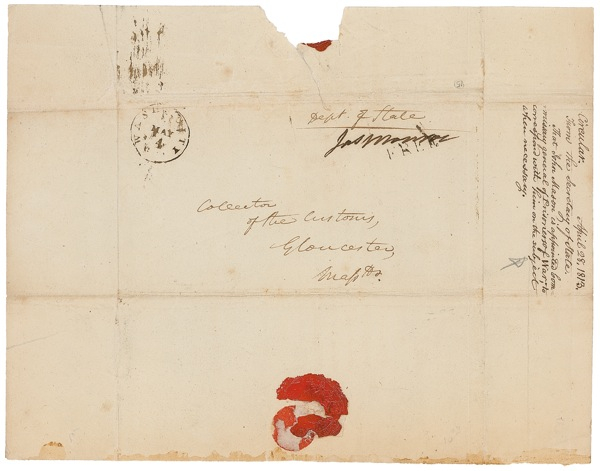 Dept. of State
Jas Monroe
FREE
WASH. CITY
MAY
Collector
of the Customs,
Gloucester,
Massts.
Circular. April 28, 1813,
from the Secretary of State.
That John Mason is appointed Com-
missary general of Prisoners of War, & to
correspond with him on the subject
when necessary.